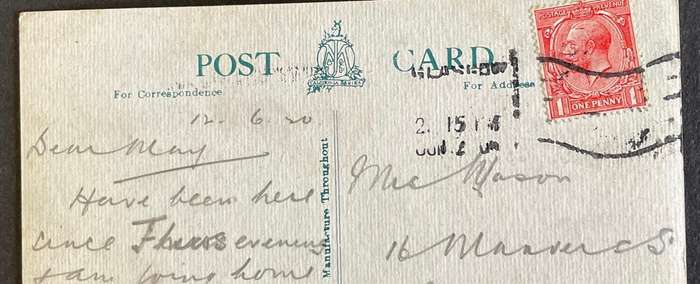 POST CARD
For Correspondence
For Address
POSTAGE REVENUE
1 ONE PENNY 1
2. 15 PM
JUN 2
12. 6. 20
Dear May
Have been here
since Thurs evening
& am going home
Manufacture Throughout
Mason
16